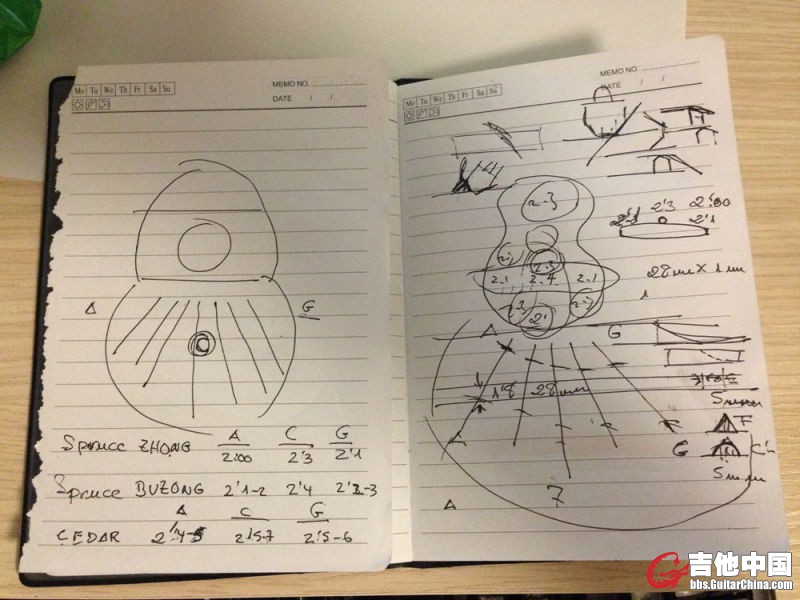 Mo Tu We Th Fr Sa Su
MEMO NO.
DATE / /
A
G
C
Spruce ZHONG A C G
2'00 2'3 2'1
Spruce BUZONG 2'1-2 2'4 2'2-3
A C G
CEDAR 2'4-5 2'5-7 2'5-6
Mo Tu We Th Fr Sa Su
MEMO NO.
DATE / /
2-3
2'3 2'00
2'1
2-3
2-1 2-4 2-1
2-3
28mm x 1mm
1
A
G
1'8 28mm
5mm
F
G
5mm
A
7
吉他中国
bbs.GuitarChina.com